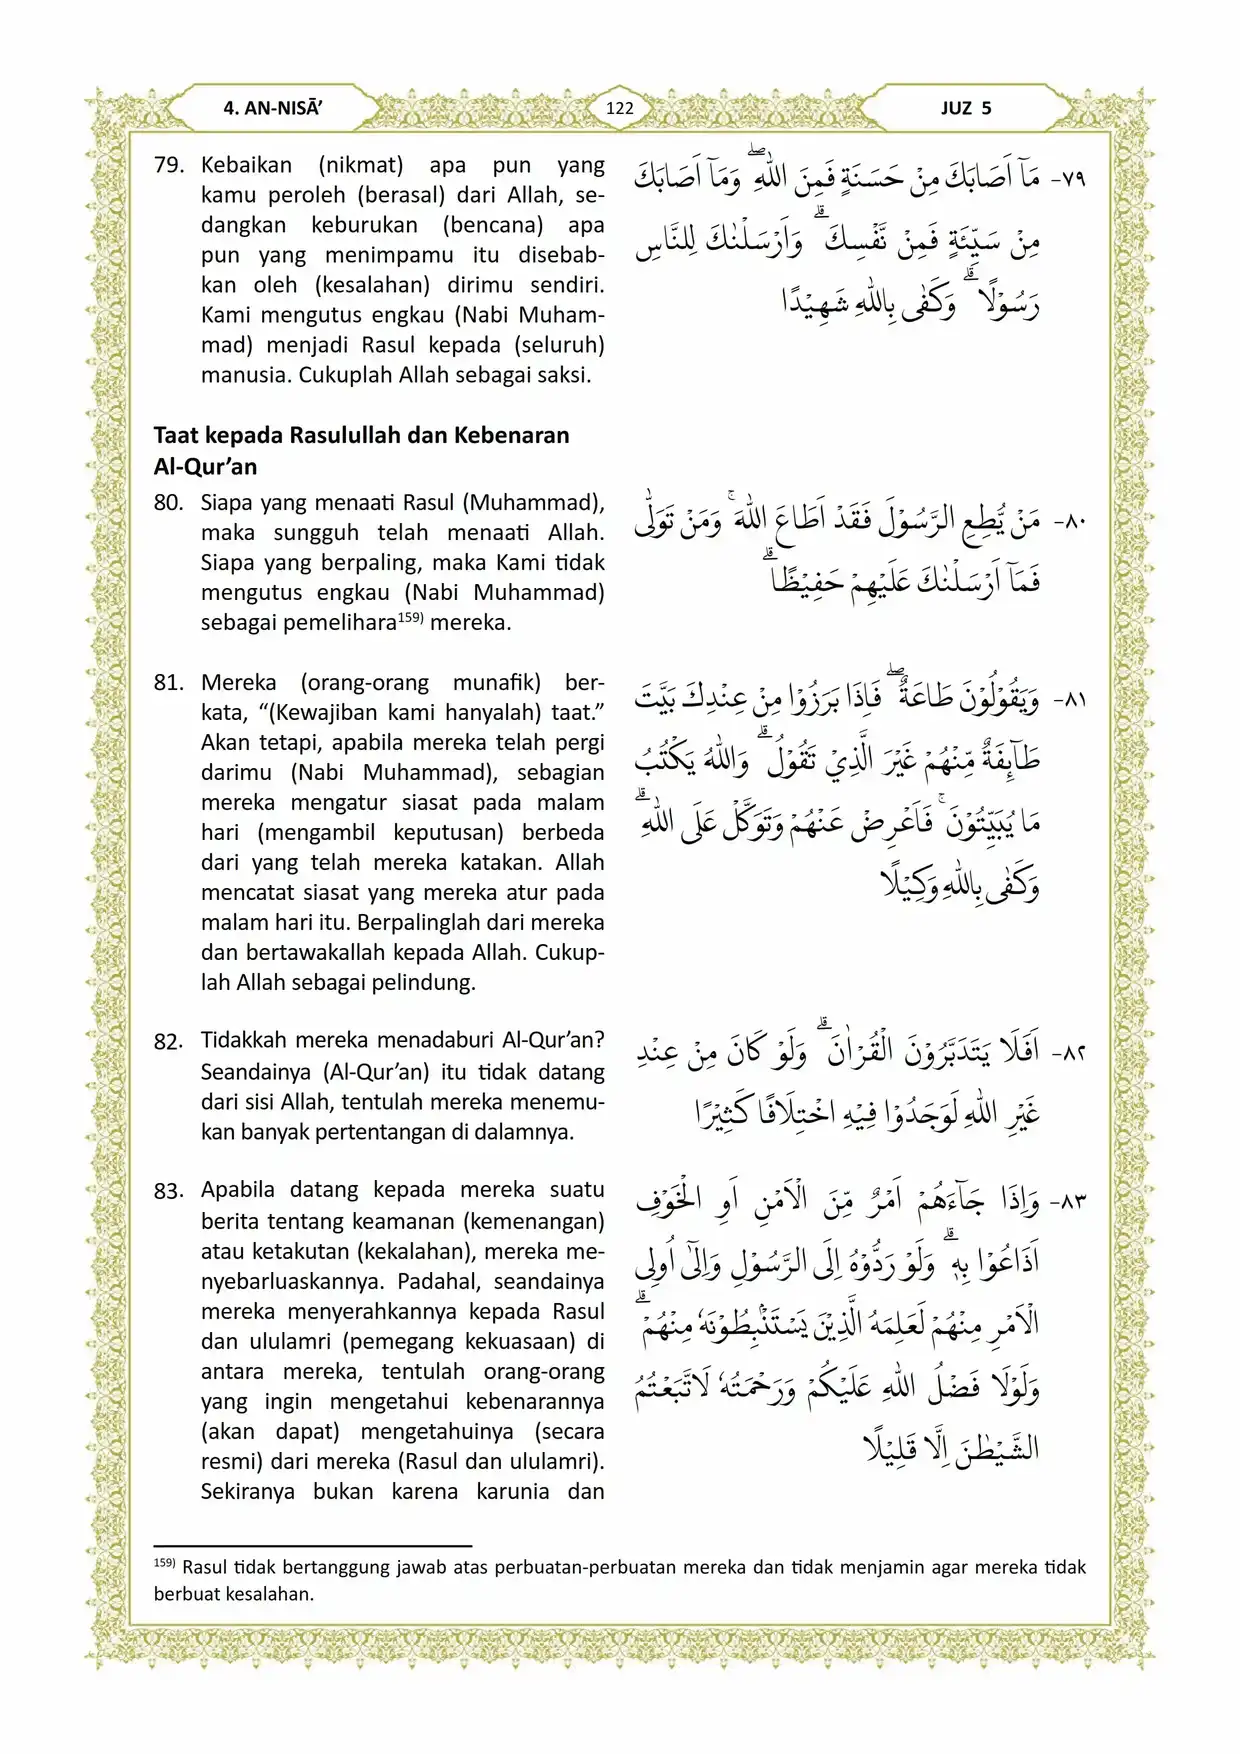 4. AN-NISĀ’
122
JUZ 5
79. Kebaikan (nikmat) apa pun yang
kamu peroleh (berasal) dari Allah, se-
dangkan keburukan (bencana) apa
pun yang menimpamu itu disebab-
kan oleh (kesalahan) dirimu sendiri.
Kami mengutus engkau (Nabi Muham-
mad) menjadi Rasul kepada (seluruh)
manusia. Cukuplah Allah sebagai saksi.
٧٩- مَآ اَصَابَكَ مِنْ حَسَنَةٍ فَمِنَ اللّٰهِ ۖ وَمَآ اَصَابَكَ
مِنْ سَيِّئَةٍ فَمِنْ نَّفْسِكَ ۗ وَاَرْسَلْنٰكَ لِلنَّاسِ
رَسُوْلًا ۗ وَكَفٰى بِاللّٰهِ شَهِيْدًا
Taat kepada Rasulullah dan Kebenaran
Al-Qur’an
80. Siapa yang menaati Rasul (Muhammad),
maka sungguh telah menaati Allah.
Siapa yang berpaling, maka Kami tidak
mengutus engkau (Nabi Muhammad)
sebagai pemelihara159) mereka.
٨٠- مَنْ يُّطِعِ الرَّسُوْلَ فَقَدْ اَطَاعَ اللّٰهَ ۚ وَمَنْ تَوَلّٰى
فَمَآ اَرْسَلْنٰكَ عَلَيْهِمْ حَفِيْظًا ۗ
81. Mereka (orang-orang munafik) ber-
kata, “(Kewajiban kami hanyalah) taat.”
Akan tetapi, apabila mereka telah pergi
darimu (Nabi Muhammad), sebagian
mereka mengatur siasat pada malam
hari (mengambil keputusan) berbeda
dari yang telah mereka katakan. Allah
mencatat siasat yang mereka atur pada
malam hari itu. Berpalinglah dari mereka
dan bertawakallah kepada Allah. Cukup-
lah Allah sebagai pelindung.
٨١- وَيَقُوْلُوْنَ طَاعَةٌ ۖ فَاِذَا بَرَزُوْا مِنْ عِنْدِكَ بَيَّتَ
طَاۤىِٕفَةٌ مِّنْهُمْ غَيْرَ الَّذِيْ تَقُوْلُ ۗ وَاللّٰهُ يَكْتُبُ
مَا يُبَيِّتُوْنَ ۚ فَاَعْرِضْ عَنْهُمْ وَتَوَكَّلْ عَلَى اللّٰهِ ۗ
وَكَفٰى بِاللّٰهِ وَكِيْلًا
82. Tidakkah mereka menadaburi Al-Qur’an?
Seandainya (Al-Qur’an) itu tidak datang
dari sisi Allah, tentulah mereka menemu-
kan banyak pertentangan di dalamnya.
٨٢- اَفَلَا يَتَدَبَّرُوْنَ الْقُرْاٰنَ ۗ وَلَوْ كَانَ مِنْ عِنْدِ
غَيْرِ اللّٰهِ لَوَجَدُوْا فِيْهِ اخْتِلَافًا كَثِيْرًا
83. Apabila datang kepada mereka suatu
berita tentang keamanan (kemenangan)
atau ketakutan (kekalahan), mereka me-
nyebarluaskannya. Padahal, seandainya
mereka menyerahkannya kepada Rasul
dan ululamri (pemegang kekuasaan) di
antara mereka, tentulah orang-orang
yang ingin mengetahui kebenarannya
(akan dapat) mengetahuinya (secara
resmi) dari mereka (Rasul dan ululamri).
Sekiranya bukan karena karunia dan
٨٣- وَاِذَا جَاۤءَهُمْ اَمْرٌ مِّنَ الْاَمْنِ اَوِ الْخَوْفِ
اَذَاعُوْا بِهٖ ۗ وَلَوْ رَدُّوْهُ اِلَى الرَّسُوْلِ وَاِلٰٓى اُولِى
الْاَمْرِ مِنْهُمْ لَعَلِمَهُ الَّذِيْنَ يَسْتَنْۢبِطُوْنَهٗ مِنْهُمْ ۗ
وَلَوْلَا فَضْلُ اللّٰهِ عَلَيْكُمْ وَرَحْمَتُهٗ لَاتَّبَعْتُمُ
الشَّيْطٰنَ اِلَّا قَلِيْلًا
159) Rasul tidak bertanggung jawab atas perbuatan-perbuatan mereka dan tidak menjamin agar mereka tidak
berbuat kesalahan.